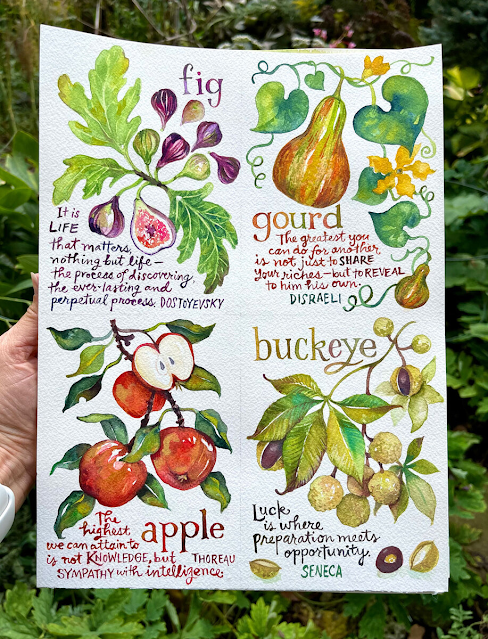 fig
It is
LIFE
that matters,
nothing but life—
the process of discovering,
the ever-lasting and
perpetual process. DOSTOYEVSKY
gourd
The greatest you
can do for another
is not just to SHARE
Your riches—but to REVEAL
to him his own.
DISRAELI
The
highest
we can attain to
is not KNOWLEDGE, but
SYMPATHY with intelligence.
THOREAU
apple
buckeye
Luck
is where
preparation meets
opportunity.
SENECA